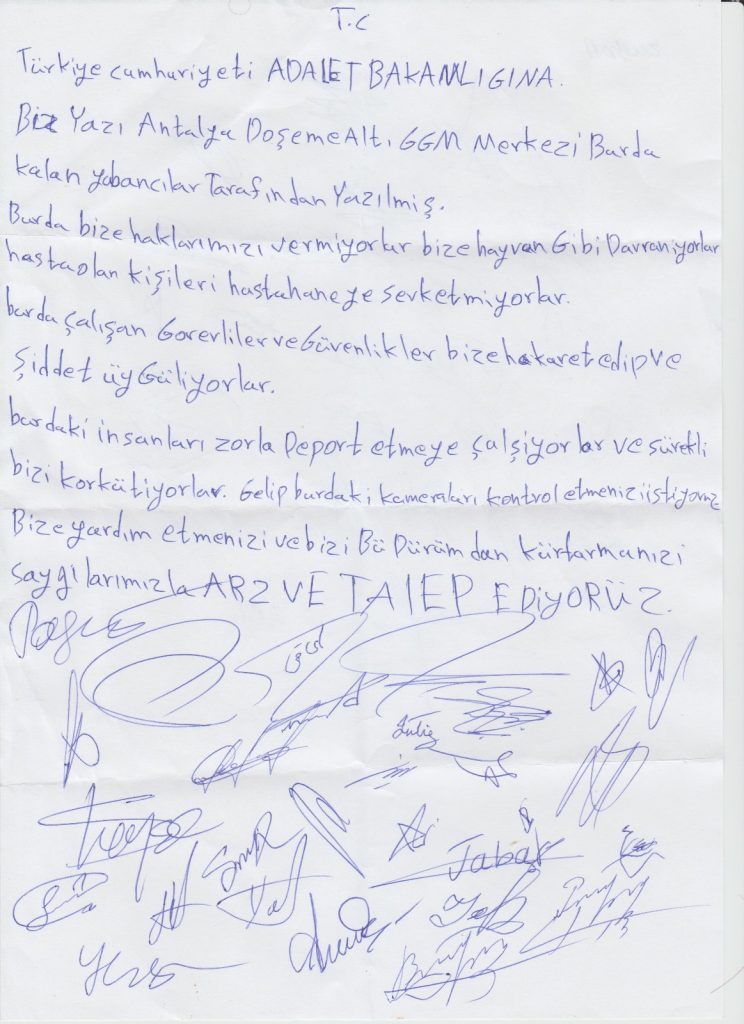 T.C
Türkiye cumhuriyeti ADALET BAKANLIGINA.
Biz Yazı Antalya DoşemeAltı GGM Merkezi Burda
kalan yabancılar Tarafından Yazılmiş.
Burda bize haklarımızı vermiyorlar bize hayvan Gibi Davraniyorlar
hasta olan kişileri hastahaneye sevketmiyorlar.
burda çalışan Gorevliler ve Güvenlikler bize hakaret edip ve
şiddet üyGüliyorlar.
burdaki insanları zorla Deport etmeye çalşiyorlar ve sürekli
bizi korkütiyorlar. Gelip burdaki kameraları kontrol etmenizi istiyoruz
Bize yardım etmenizi ve bizi Bü Dürümdan kürtarmanızi
saygılarımızla ARZ VE TALEP EDiYORÜZ.
Jabar